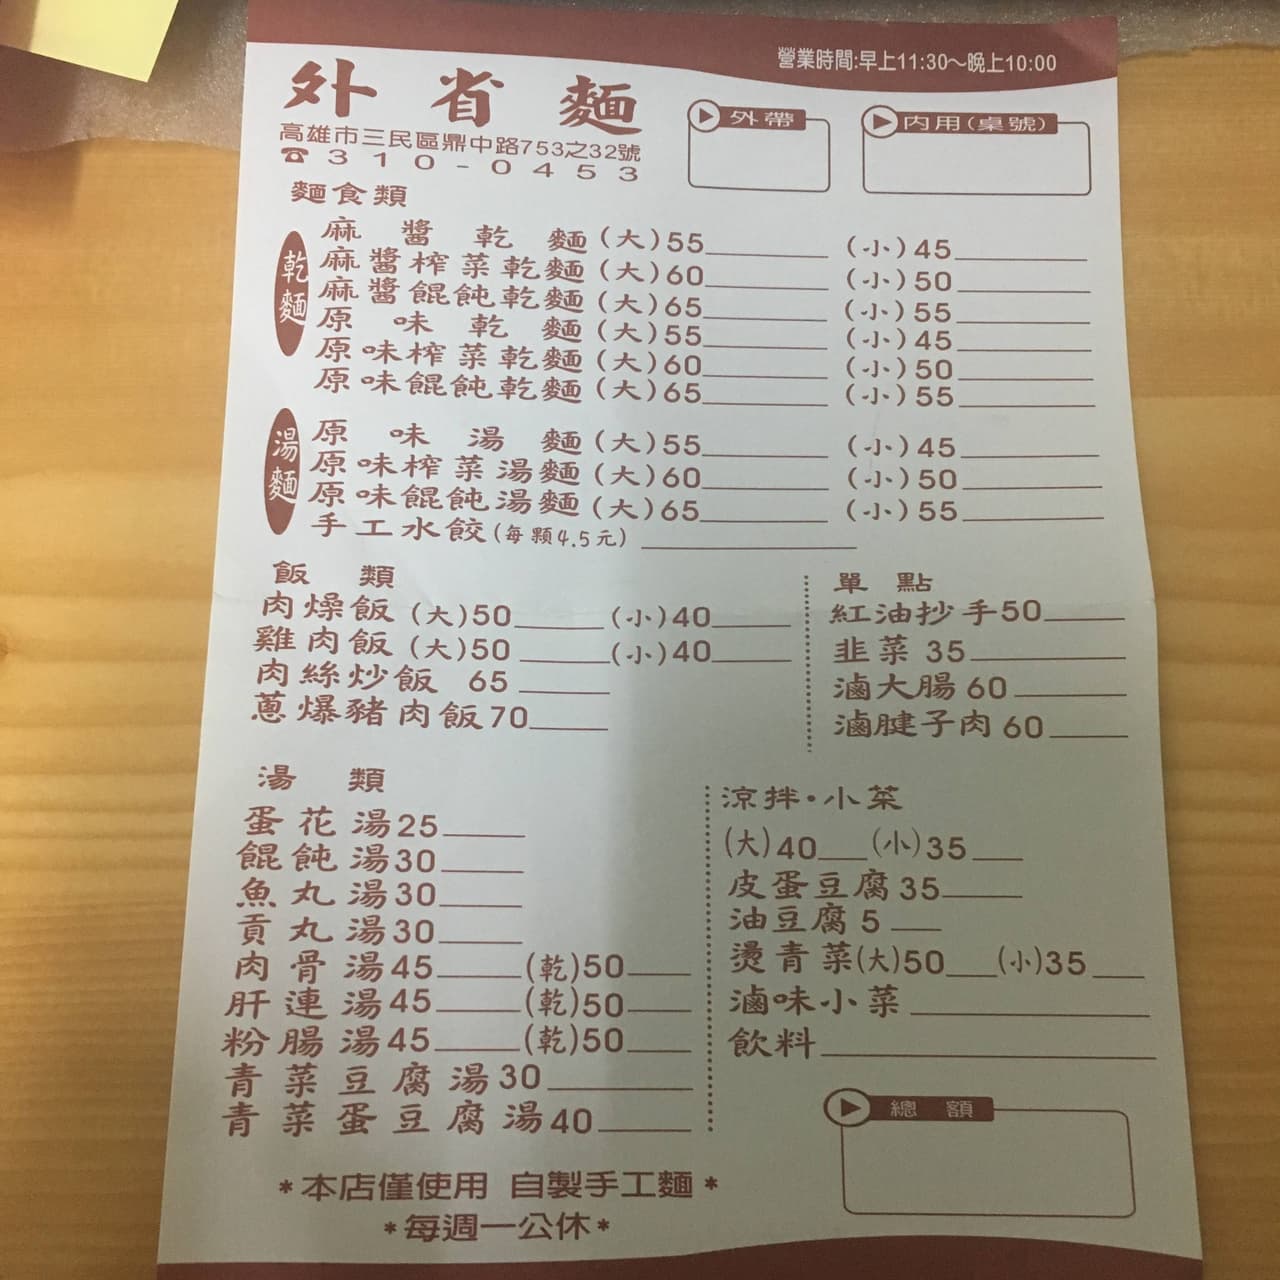 營業時間:早上11:30～晚上10:00
外省麵
高雄市三民區鼎中路753之32號
☎310-0453
外帶
內用(桌號)
麵食類
乾麵
麻醬乾麵(大)55____(小)45____
麻醬榨菜乾麵(大)60____(小)50____
麻醬餛飩乾麵(大)65____(小)55____
原味乾麵(大)55____(小)45____
原味榨菜乾麵(大)60____(小)50____
原味餛飩乾麵(大)65____(小)55____
湯麵
原味湯麵(大)55____(小)45____
原味榨菜湯麵(大)60____(小)50____
原味餛飩湯麵(大)65____(小)55____
手工水餃(每顆4.5元)____
飯類
肉燥飯(大)50____(小)40____
雞肉飯(大)50____(小)40____
肉絲炒飯 65____
蔥爆豬肉飯70____
單點
紅油抄手50____
韭菜 35____
滷大腸60____
滷腱子肉60____
湯類
蛋花湯25____
餛飩湯30____
魚丸湯30____
貢丸湯30____
肉骨湯45____(乾)50____
肝連湯45____(乾)50____
粉腸湯45____(乾)50____
青菜豆腐湯30____
青菜蛋豆腐湯40____
涼拌·小菜
(大)40____(小)35____
皮蛋豆腐35____
油豆腐5____
燙青菜(大)50____(小)35____
滷味小菜____
飲料____
總額
*本店僅使用 自製手工麵*
*每週一公休*